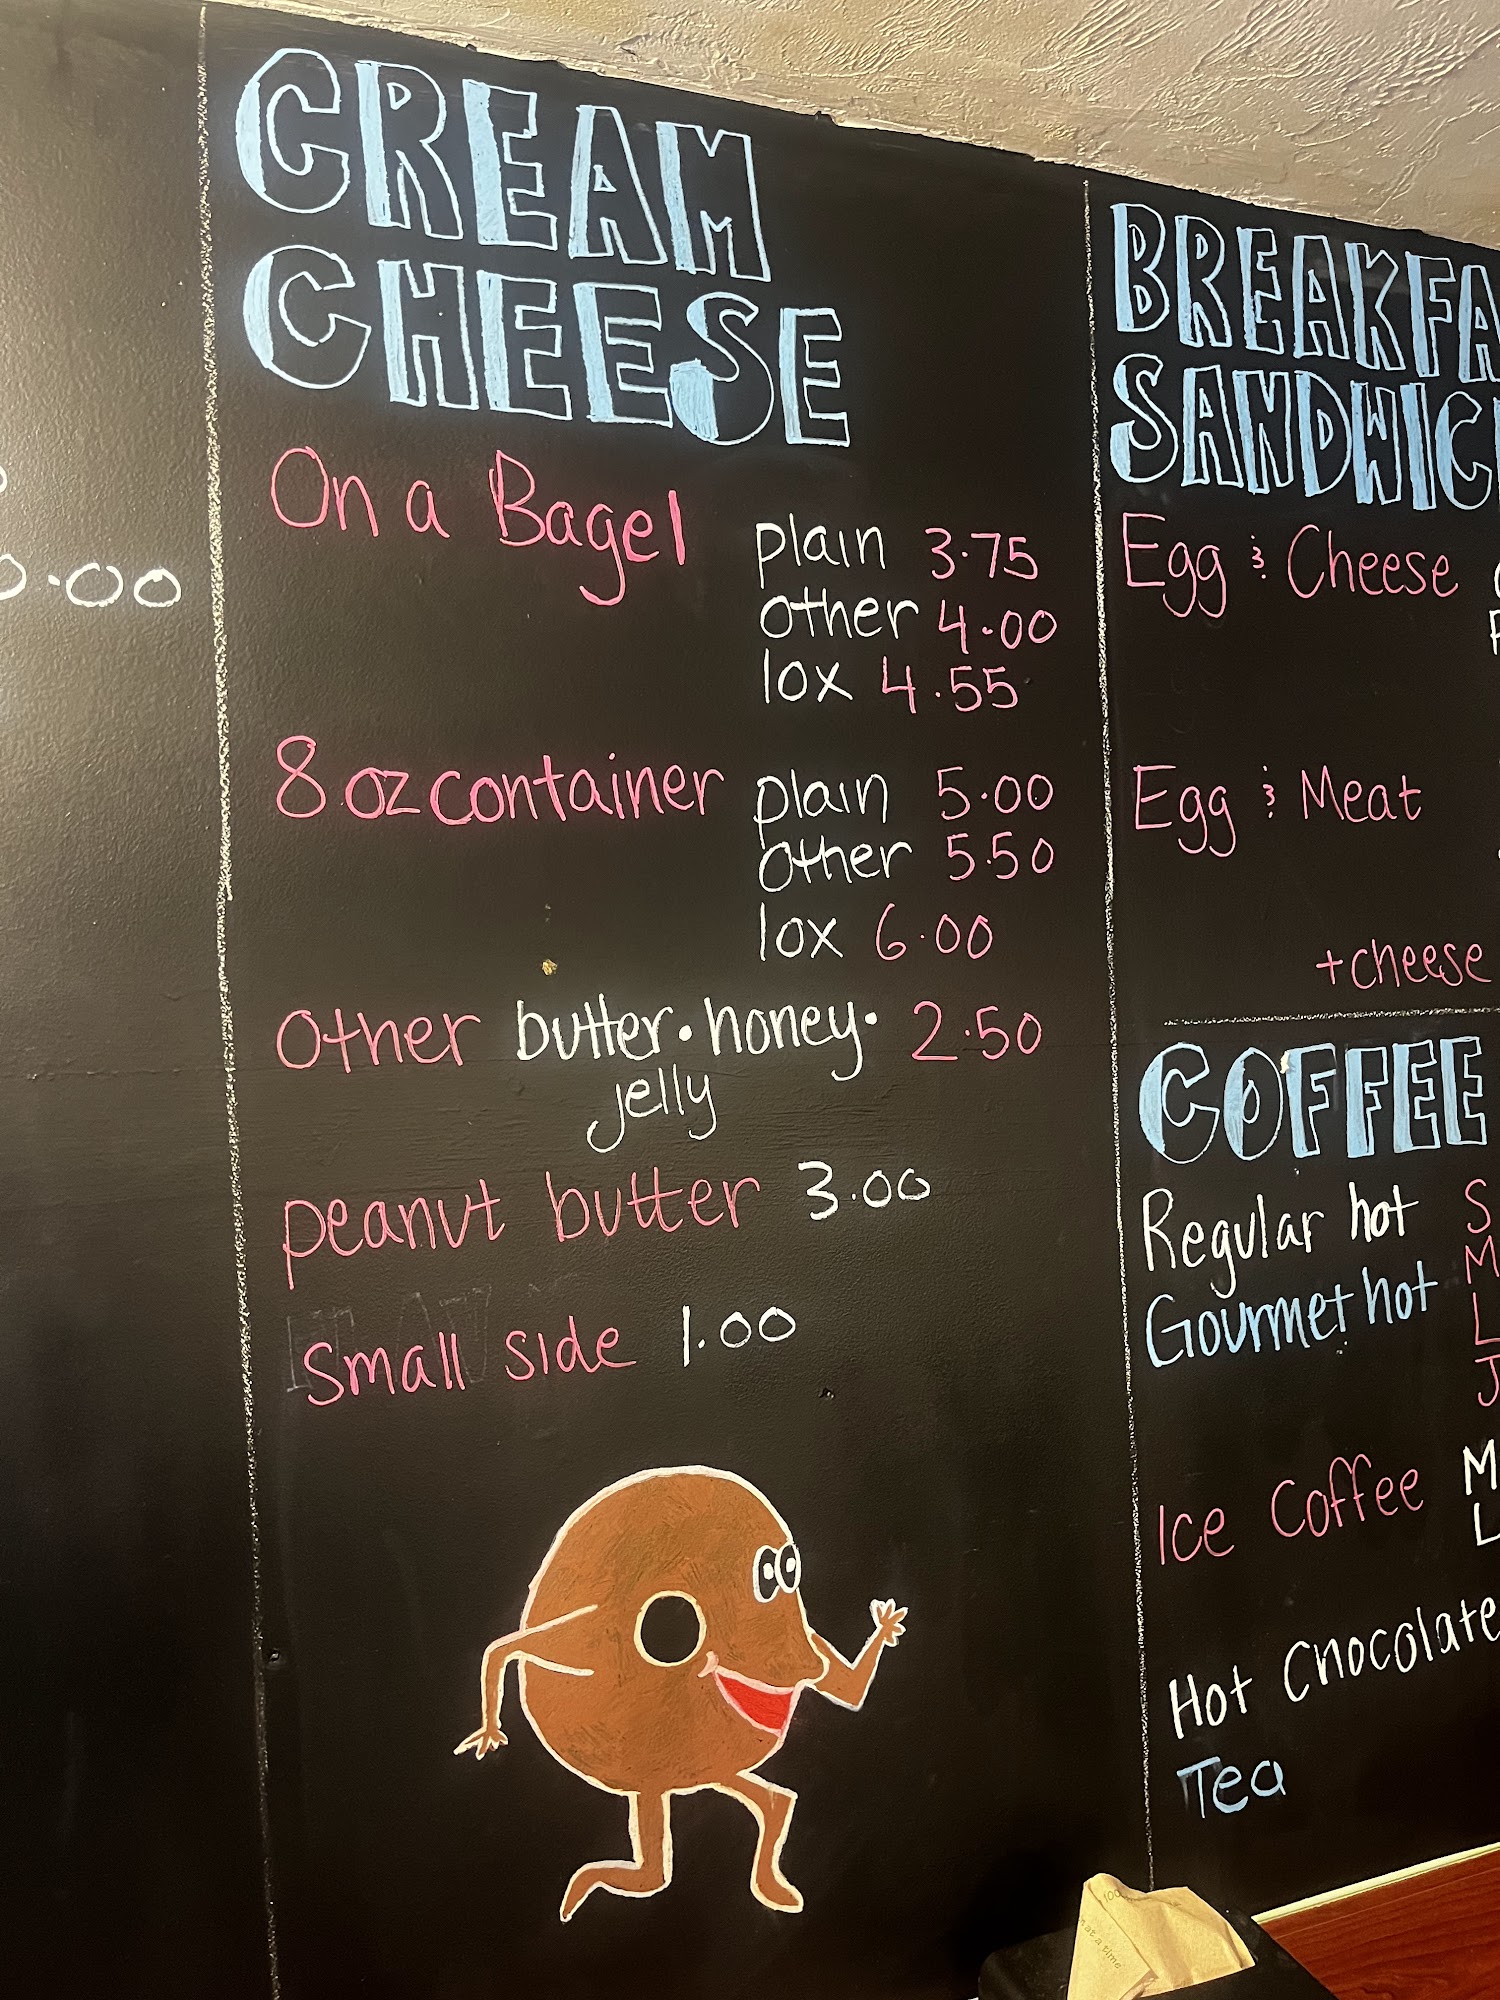 CREAM
CHEESE
On a Bagel
plain 3.75
other 4.00
lox 4.55
8 oz container
plain 5.00
other 5.50
lox 6.00
Other butter • honey • 2.50
jelly
peanut butter 3.00
small side 1.00
.00
BREAKFA
SANDWIC
Egg & Cheese
Egg & Meat
+cheese
COFFEE
Regular hot S
Gourmet hot M
L
J
Ice Coffee M
L
Hot Chocolate
Tea